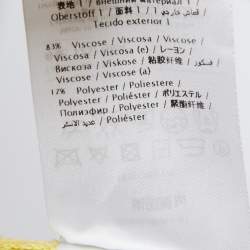 表地 | внешний материал 1
Oberstoff 1 / 面料 1 / قماش خارجي 1
Tecido exterior 1
83% Viscose / Viscosa / Viscose
Viscose / Viscosa (e) / レーヨン
Вискоза / Viskose / 粘胶纤维 / فسكوز
Viscose / Viscose (a)
17% Polyester / Poliestere
Polyester / Poliéster / ポリエステル
Полиэфир / Polyester / 聚酯纤维
Poliéster /